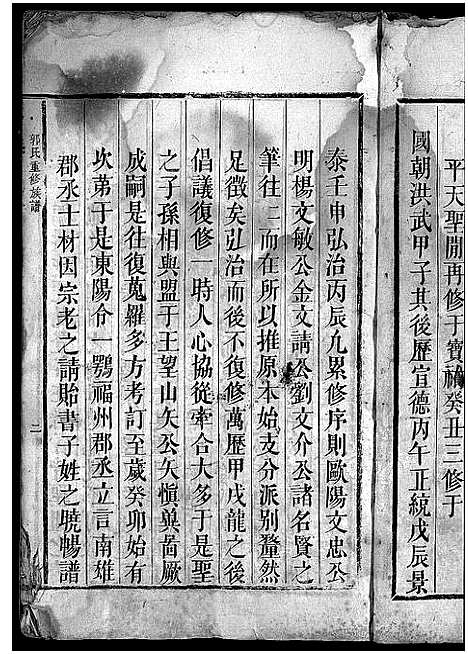 平天聖開再修于寶祐癸丑三修于
國朝洪武甲子其後歷宣德丙午正統戊辰景
泰壬申弘治丙辰凡累修序則歐陽文忠公
明楊文敏公金文請公劉文介公諸名賢之
筆往二而在所以推原本始支分派別釐然
足徵矣弘治而後不復修萬歷甲戌龍之後
倡議復修一時人心協從牽合大多于是聖
之子孫相與盟于王望山矢公矢愼與啚厥
成嗣是往復蒐羅多方考訂至歲癸卯始有
次苐于是東陽令一鶚福州郡丞立言南雄
郡丞士材因宗老之請貽書子姓之曉暢譜
郭氏重修族譜
二